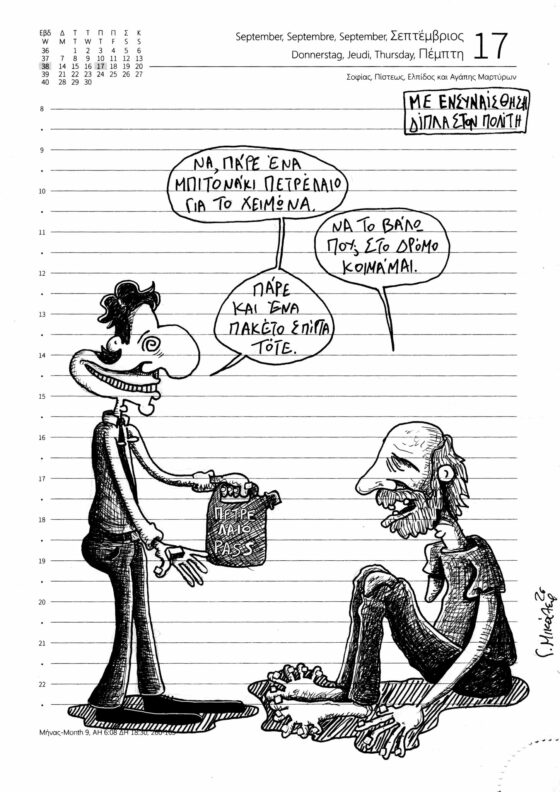 Εβδ Δ Τ Τ Π Π Σ Κ
W M T W T F S S
36 1 2 3 4 5 6
37 7 8 9 10 11 12 13
38 14 15 16 17 18 19 20
39 21 22 23 24 25 26 27
40 28 29 30
September, Septembre, September, Σεπτέμβριος
Donnerstag, Jeudi, Thursday, Πέμπτη
17
Σοφίας, Πίστεως, Ελπίδος και Αγάπης Μαρτύρων
ΜΕ ΕΝΣΥΝΑΙΣΘΗΣΗ
ΔΙΠΛΑ ΣΤΟΝ ΠΟΛΙΤΗ
8
9
10
11
12
13
14
15
16
17
18
19
20
21
22
ΝΑ, ΠΑΡΕ ΈΝΑ
ΜΠΙΤΟΝΑΚΙ ΠΕΤΡΕΛΑΙΟ
ΓΙΑ ΤΟ ΧΕΙΜΩΝΑ.
ΝΑ ΤΟ ΒΑΛΩ
ΠΟΥ; ΣΤΟ ΔΡΟΜΟ
ΚΟΙΜΑΜΑΙ.
ΠΑΡΕ
ΚΑΙ ΈΝΑ
ΠΑΚΕΤΟ ΣΠΙΡΤΑ
ΤΟΤΕ.
ΠΕΤΡΕ
ΛΑΙΟ
PASS
Μήνας-Month 9, ΑΗ 6:08 ΔΗ 18:30, 260-105